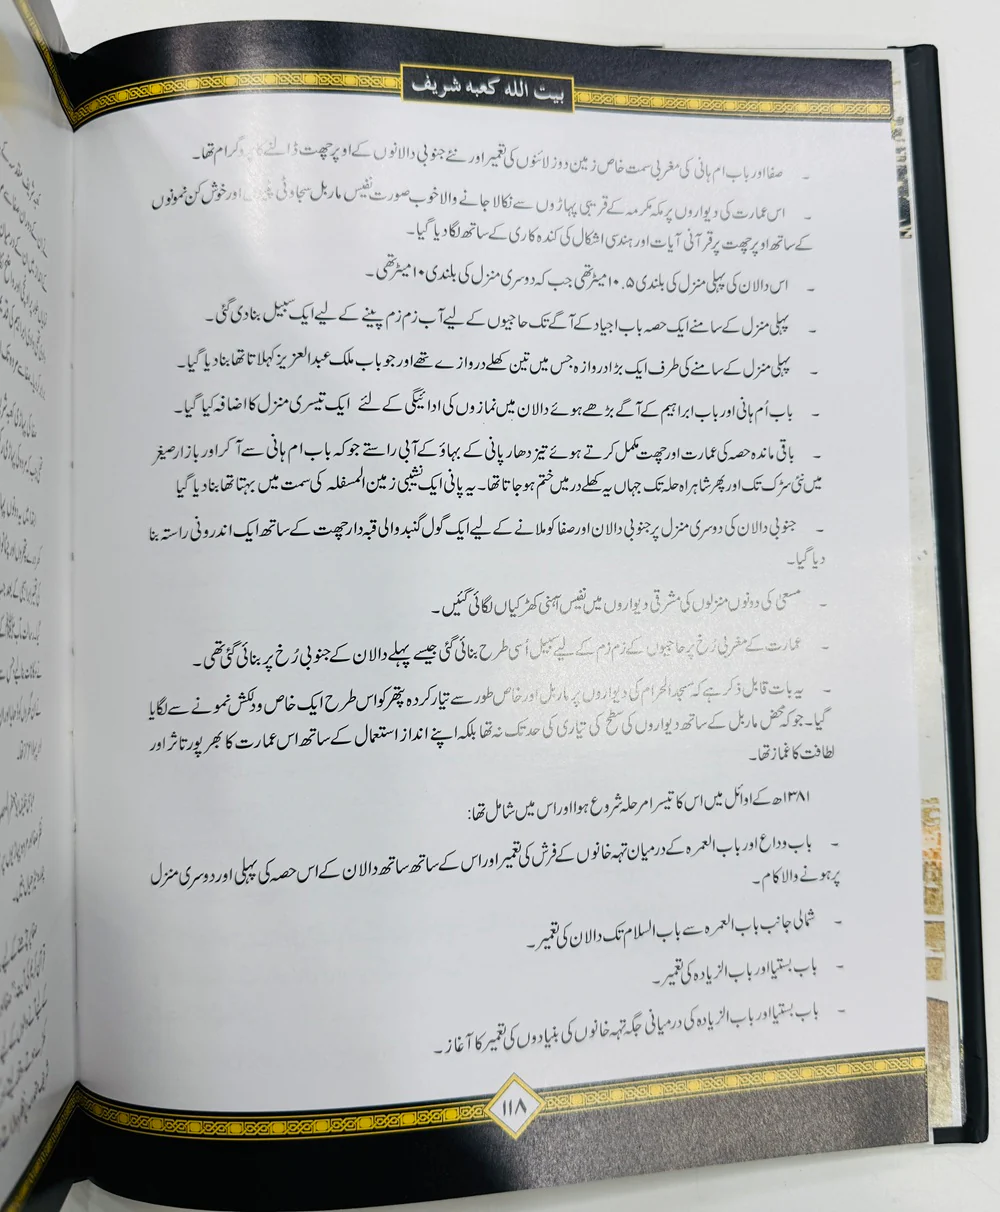 بیت اللہ کعبہ شریف
۔ صفا اور باب ام ہانی کی مغربی سمت خاص زمین دوز لائنوں کی تعمیر اور نئے جنوبی دالانوں کے اوپر چھت ڈالنے کا پروگرام تھا۔
۔ اس عمارت کی دیواروں پر مکہ مکرمہ کے قریبی پہاڑوں سے نکالا جانے والا خوب صورت نفیس ماربل سجاوٹی اور خوش کن نمونوں
کے ساتھ اوپر چھت پر قرآنی آیات اور ہندسی اشکال کی کندہ کاری کے ساتھ لگا دیا گیا۔
۔ اس دالان کی پہلی منزل کی بلندی ۱۰.۵ میٹر تھی جب کہ دوسری منزل کی بلندی ۱۰ میٹر تھی۔
۔ پہلی منزل کے سامنے ایک حصہ باب اجیاد کے آگے تک حاجیوں کے لیے آب زم زم پینے کے لیے ایک سبیل بنا دی گئی۔
۔ پہلی منزل کے سامنے کی طرف ایک بڑا دروازہ جس میں تین کھلے دروازے تھے اور جو باب ملک عبدالعزیز کہلاتا تھا بنا دیا گیا۔
۔ باب اُم ہانی اور باب ابراہیم کے آگے بڑھے ہوئے دالان میں نمازوں کی ادائیگی کے لئے ایک تیسری منزل کا اضافہ کیا گیا۔
۔ باقی ماندہ حصہ کی عمارت اور چھت مکمل کرتے ہوئے تیز دھار پانی کے بہاؤ کے آبی راستے جو کہ باب ام ہانی سے آ کر اور بازار صیغر
میں نئی سڑک تک اور پھر شاہراہ حلہ تک جہاں یہ کھلے در میں ختم ہو جاتا تھا۔ یہ پانی ایک نشیبی زمین المسفلہ کی سمت میں بہتا تھا بنا دیا گیا
۔ جنوبی دالان کی دوسری منزل پر جنوبی دالان اور صفا کو ملانے کے لیے ایک گول گنبد والی قبہ دار چھت کے ساتھ ایک اندرونی راستہ بنا
دیا گیا۔
۔ مسعیٰ کی دونوں منزلوں کی مشرقی دیواروں میں نفیس آہنی کھڑکیاں لگائی گئیں۔
۔ عمارت کے مغربی رُخ پر حاجیوں کے زم زم کے لیے سبیل اُسی طرح بنائی گئی جیسے پہلے دالان کے جنوبی رُخ پر بنائی گئی تھی۔
۔ یہ بات قابل ذکر ہے کہ مسجد الحرام کی دیواروں پر ماربل اور خاص طور سے تیار کردہ پتھر کو اس طرح ایک خاص و دلکش نمونے سے لگایا
گیا۔ جو کہ محض ماربل کے ساتھ دیواروں کی سطح کی تیاری کی حد تک نہ تھا بلکہ اپنے انداز استعمال کے ساتھ اس عمارت کا بھرپور تاثر اور
لطافت کا غماز تھا۔
۱۳۸۱ھ کے اوائل میں اس کا تیسرا مرحلہ شروع ہوا اور اس میں شامل تھا:
۔ باب وداع اور باب العمرہ کے درمیان تہہ خانوں کے فرش کی تعمیر اور اس کے ساتھ ساتھ دالان کے اس حصہ کی پہلی اور دوسری منزل
پر ہونے والا کام۔
۔ شمالی جانب باب العمرہ سے باب السلام تک دالان کی تعمیر۔
۔ باب بستیا اور باب الزیادہ کی تعمیر۔
۔ باب بستیا اور باب الزیادہ کی درمیانی جگہ تہہ خانوں کی بنیادوں کی تعمیر کا آغاز۔
۱۱۸